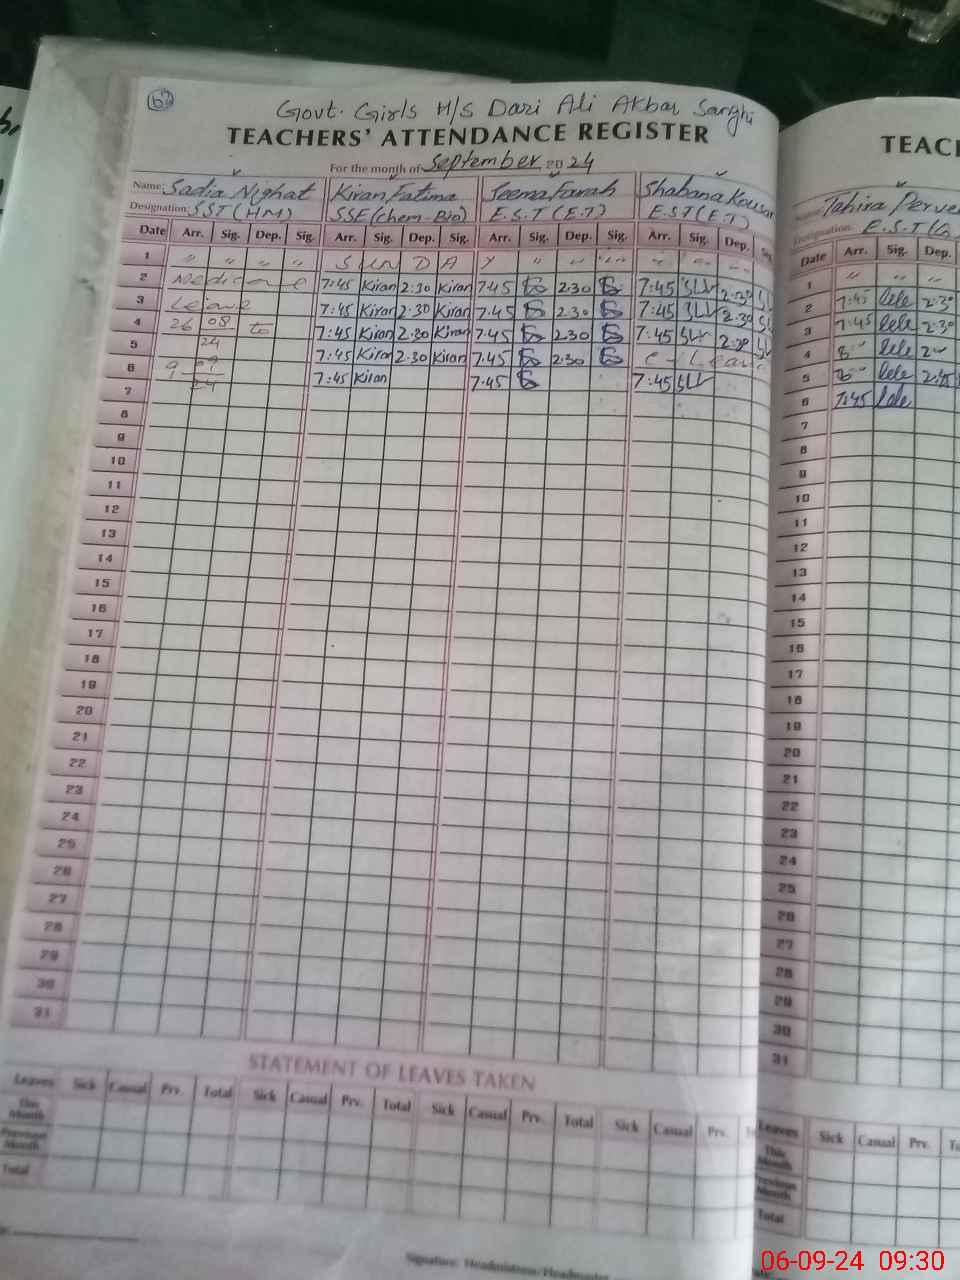 62
Govt. Girls H/S Dari Ali Akbar Sanghi
TEACHERS' ATTENDANCE REGISTER
For the month of September 2024
Name: Sadia Nighat Kiran Fatima Seema Farah Shabana Kousar
Designation: SST (HM) SSE (Chem-Bio) E.S.T (E.T) E.S.T (E.T)
Date Arr. Sig. Dep. Sig. Arr. Sig. Dep. Sig. Arr. Sig. Dep. Sig. Arr. Sig. Dep. Sig.
1 " " " " S U N D A Y " " " " " "
2 Medical 7:45 Kiran 2:30 Kiran 7:45 2:30 7:45 2:30
3 Leave 7:45 Kiran 2:30 Kiran 7:45 2:30 7:45 2:30
4 26 08 24 to 7:45 Kiran 2:30 Kiran 7:45 2:30 7:45 2:30
5 7:45 Kiran 2:30 Kiran 7:45 2:30 C-Leave
6 9 09 24 7:45 Kiran 7:45 7:45
7
8
9
10
11
12
13
14
15
16
17
18
19
20
21
22
23
24
25
26
27
28
29
30
31
STATEMENT OF LEAVES TAKEN
Leaves Sick Casual Prv. Total Sick Casual Prv. Total Sick Casual Prv. Total Sick Casual Prv.
This Month
Previous Month
Total
Signature: Headmistress/Headmaster
TEAC
Tahira Perve
Designation: E.S.T
Date Arr. Sig. Dep.
1 " " "
2 7:45 2:30
3 7:45 2:30
4
5 2:45
6 7:45
7
8
9
10
11
12
13
14
15
16
17
18
19
20
21
22
23
24
25
26
27
28
29
30
31
Leaves Sick Casual Prv.
This Month
Previous Month
Total
06-09-24 09:30